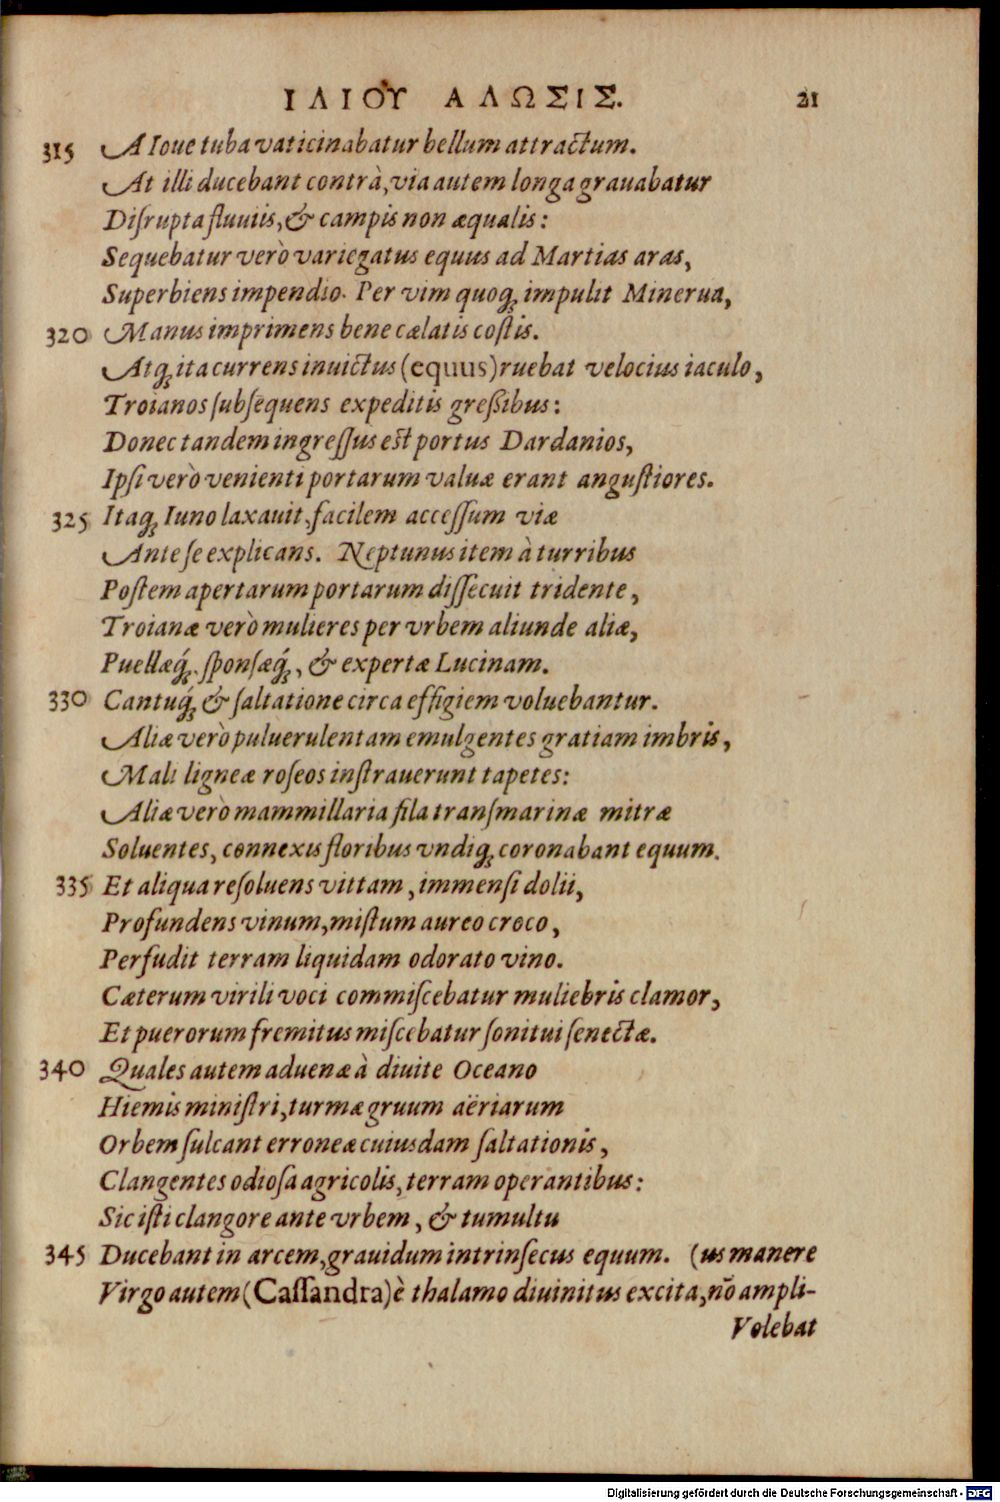 ΙΛΙΟΥ ΑΛΩΣΙΣ. 21
315 A Ioue tuba vaticinabatur bellum attractum.
At illi ducebant contrà, via autem longa grauabatur
Disrupta fluuiis, & campis non æqualis:
Sequebatur verò variegatus equus ad Martias aras,
Superbiens impendio. Per vim quoq; impulit Minerua,
320 Manus imprimens bene cælatis costis.
Atq; ita currens inuictus (equus) ruebat velocius iaculo,
Troianos subsequens expeditis greßibus:
Donec tandem ingressus est portus Dardanios,
Ipsi verò venienti portarum valuæ erant angustiores.
325 Itaq; Iuno laxauit, facilem accessum viæ
Ante se explicans. Neptunus item à turribus
Postem apertarum portarum dissecuit tridente,
Troianæ verò mulieres per vrbem aliunde aliæ,
Puellæq́; sponsæq́;, & expertæ Lucinam.
330 Cantuq́; & saltatione circa effigiem voluebantur.
Aliæ verò puluerulentam emulgentes gratiam imbris,
Mali ligneæ roseos instrauerunt tapetes:
Aliæ verò mammillaria fila transmarinæ mitræ
Soluentes, connexis floribus vndiq; coronabant equum.
335 Et aliqua resoluens vittam, immensi dolii,
Profundens vinum, mistum aureo croco,
Perfudit terram liquidam odorato vino.
Cæterum virili voci commiscebatur muliebris clamor,
Et puerorum fremitus miscebatur sonitui senectæ.
340 Quales autem aduenæ à diuite Oceano
Hiemis ministri, turmæ gruum aëriarum
Orbem sulcant erroneæ cuiusdam saltationis,
Clangentes odiosa agricolis, terram operantibus:
Sic isti clangore ante vrbem, & tumultu
345 Ducebant in arcem, grauidum intrinsecus equum. (us manere
Virgo autem (Cassandra) è thalamo diuinitus excita, nõ ampli-
Volebat
Digitalisierung gefördert durch die Deutsche Forschungsgemeinschaft - DFG